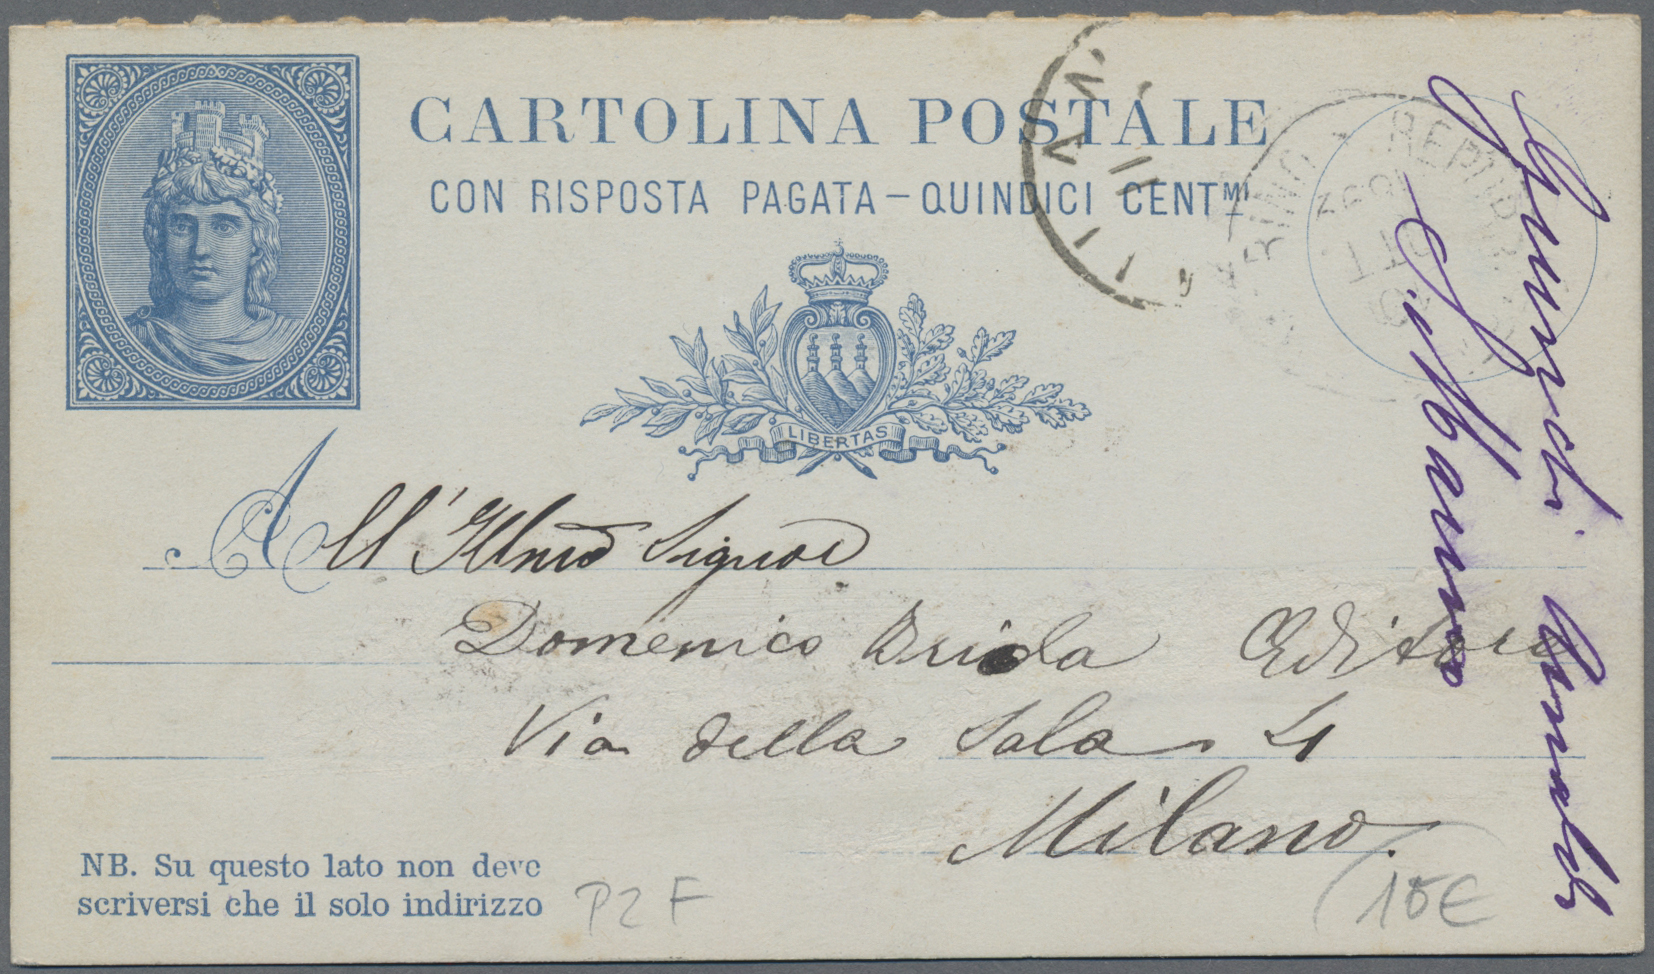 CARTOLINA POSTALE
CON RISPOSTA PAGATA — QUINDICI CENTMI
LIBERTAS
All' Illmo Signor
Domenico Briola Editore
Via della Sala 4
Milano.
NB. Su questo lato non deve
scriversi che il solo indirizzo
P2F
10€
S. Marino